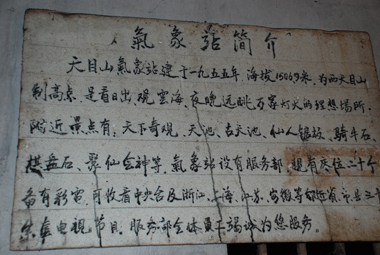 氣象站简介
天目山氣象站建于一九五五年,海拔1506.9米,为西天目山
制高点,是看日出、观雲海、夜晚远眺万家灯火的理想場所,
附近景点有:天下奇观、天池、古天池、仙人锯板、騎牛石、
棋盘石、聚仙全神等。氣象站设有服务部,现有床位二十个
备有彩电,可收看中央台及浙江、上海、江苏、安徽等
电视节目。服务部全体員工竭诚为您服务。